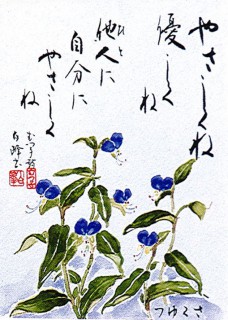 やさしくね
優しくね
ひと
他人に
自分に
やさしくね
つゆくさ